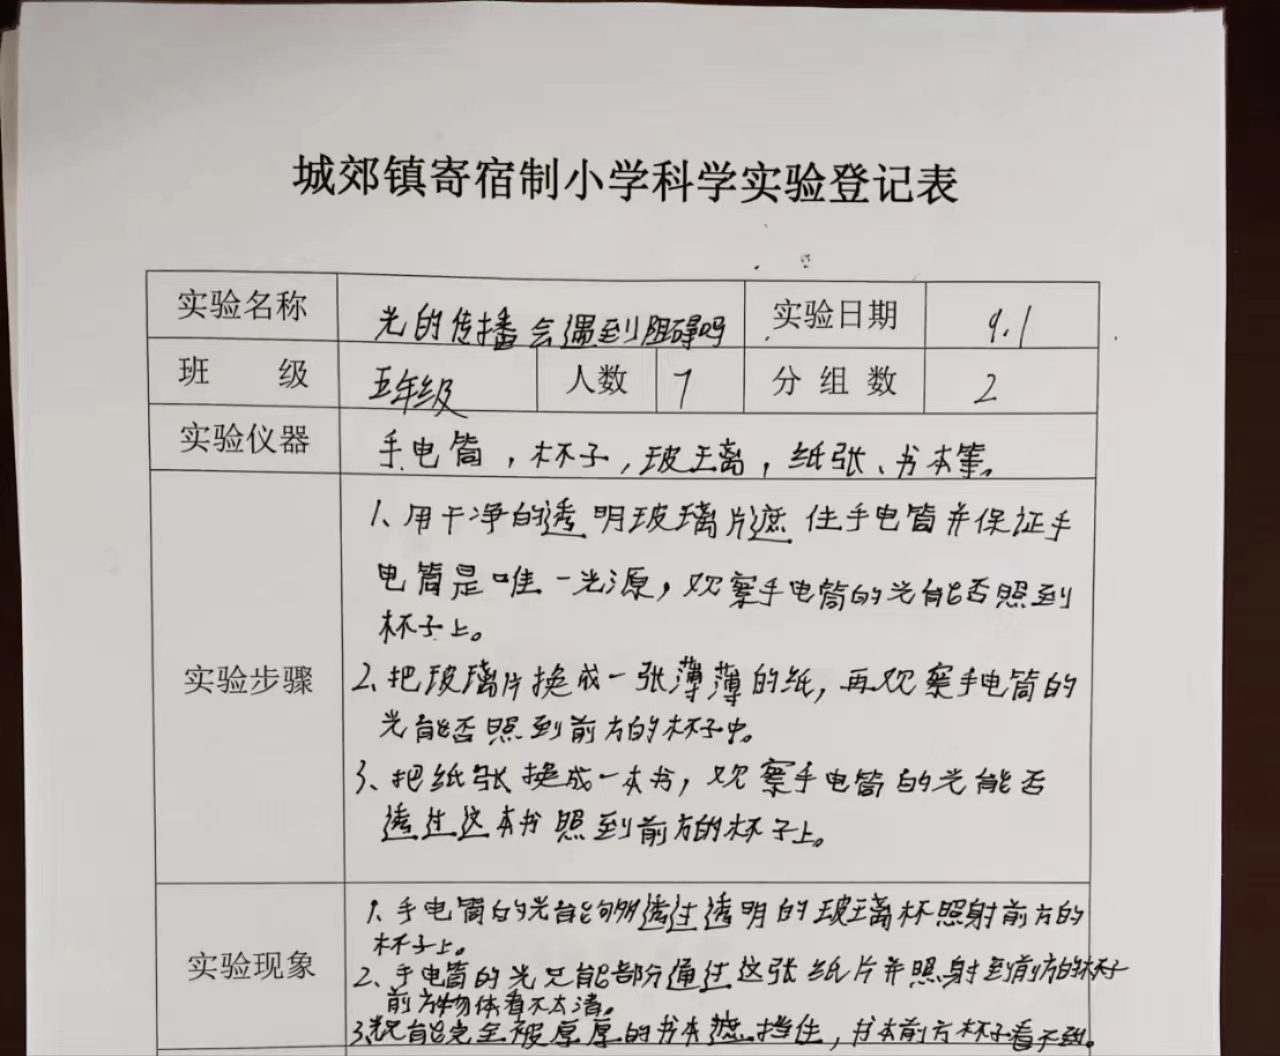 城郊镇寄宿制小学科学实验登记表
实验名称 光的传播会遇到阻碍吗 实验日期 9.1
班 级 五年级 人数 7 分组数 2
实验仪器 手电筒，杯子，玻璃，纸张、书本等。
实验步骤
1、用干净的透明玻璃片遮住手电筒并保证手
电筒是唯一光源，观察手电筒的光能否照到
杯子上。
2、把玻璃片换成一张薄薄的纸，再观察手电筒的
光能否照到前方的杯子中。
3、把纸张换成一本书，观察手电筒的光能否
透过这本书照到前方的杯子上。
实验现象
1、手电筒的光能够透过透明的玻璃杯照射前方的
杯子上。
2、手电筒的光只能部分通过这张纸片并照射到前方的杯子
前方物体看不太清。
3、光能完全被厚厚的书本遮挡住，书本前方杯子看不到。